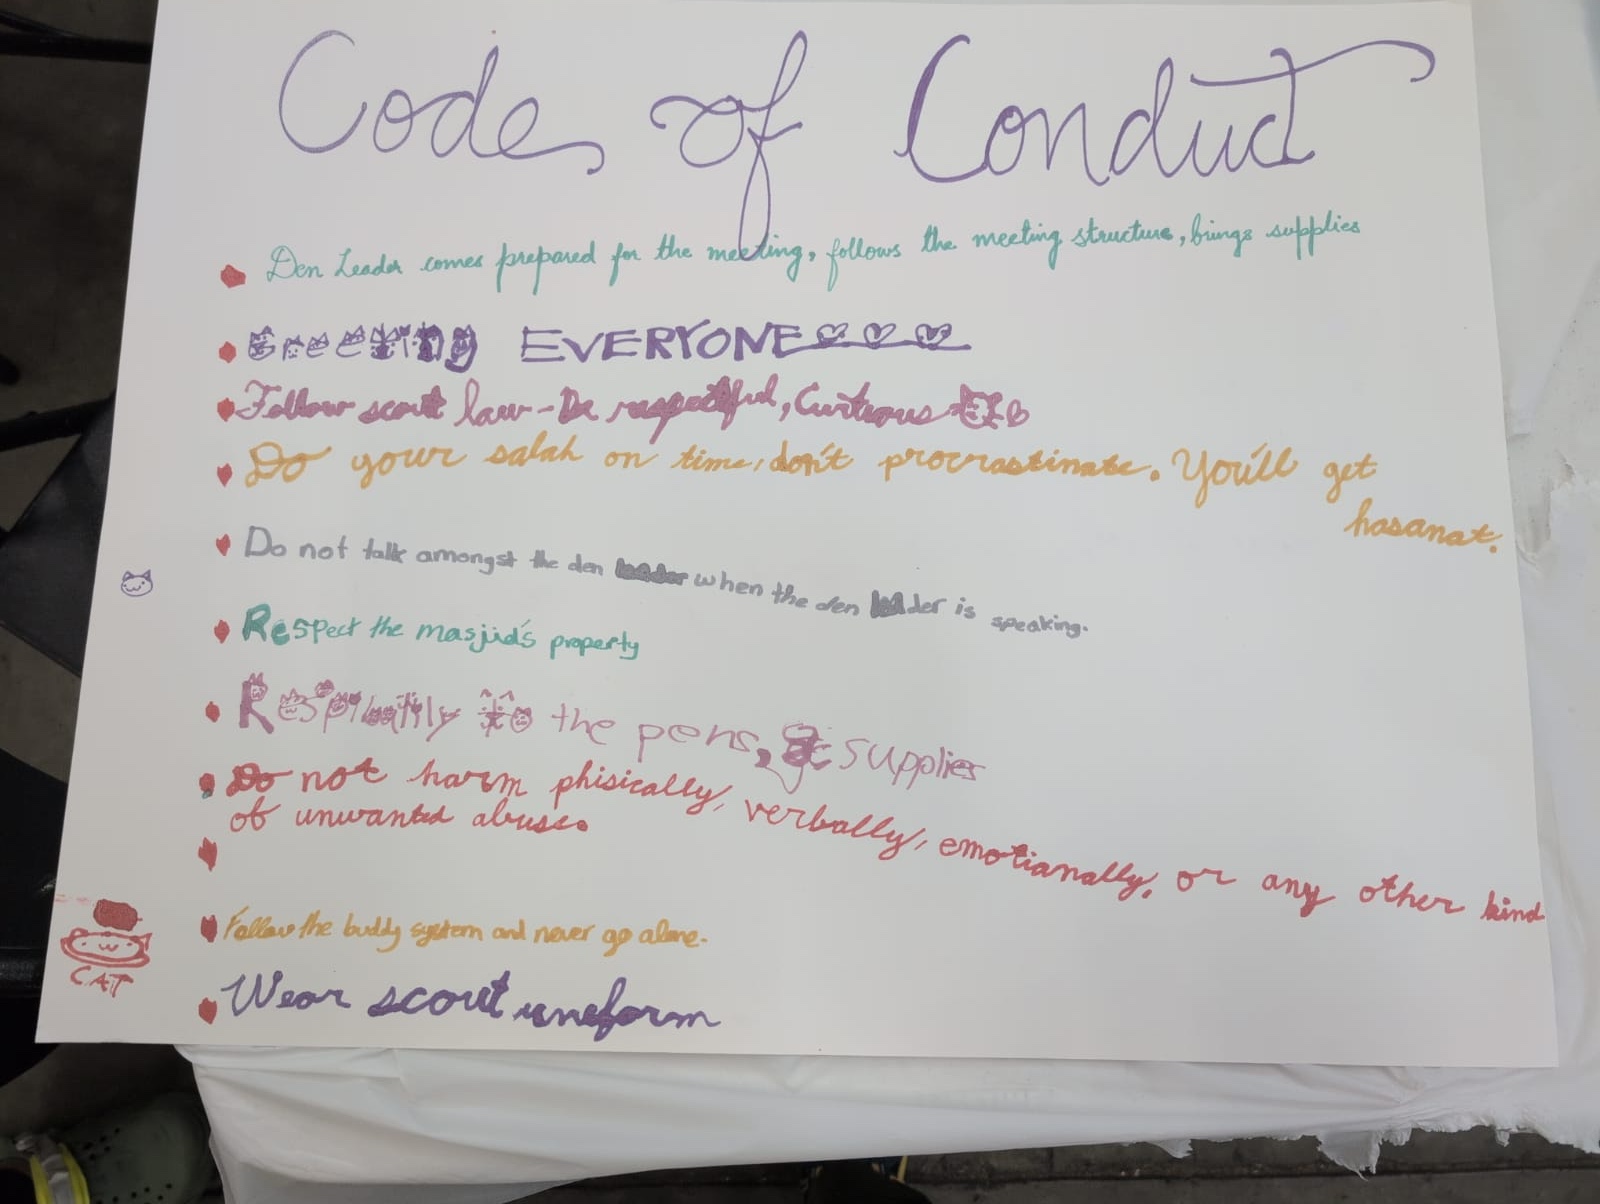 Code of Conduct
Den Leader comes prepared for the meeting, follows the meeting structure, brings supplies
Greeting EVERYONE
Follow scout law - Be respectful, Curteous
Do your salah on time, don't procrastinate. You'll get
hasanat.
Do not talk amongst the den leader when the den leader is speaking.
Respect the masjid's property
to the pens, & supplies
Do not harm phisically, verbally, emotianally, or any other kind
of unwanted abuse.
Follow the buddy system and never go alone.
CAT
Wear scout uneform